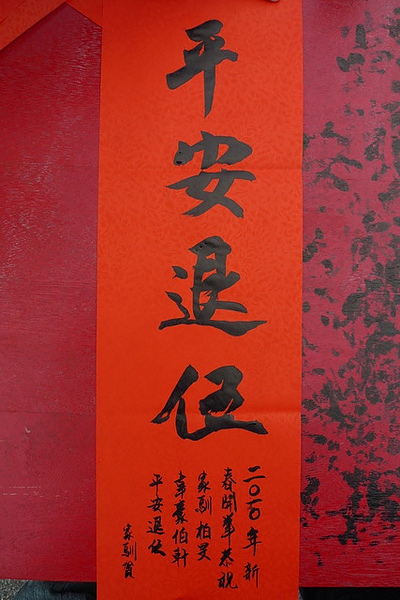 平安退伍
二〇二〇年新
春開筆恭祝
家馴柏昊
豪伯軒
平安退伍
家馴賀